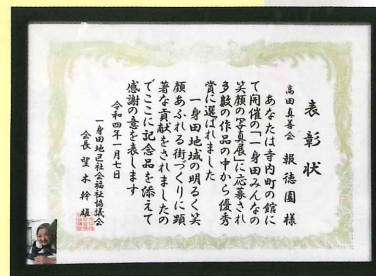 表彰状
高田真善会 報徳園 様
あなたは寺内町の館に
て開催の「一身田みんなの
笑顔の写真展」に応募され
多数の作品の中から優秀
賞に選ばれました
一身田地域の明るく笑
顔あふれる街づくりに顕
著な貢献をされましたの
でここに記念品を添えて
感謝の意を表します
令和四年一月七日
一身田地区社会福祉協議会
会長 望木幹雄